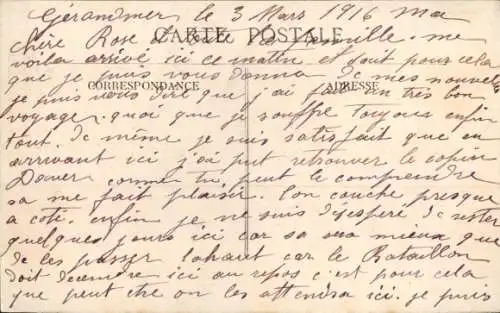 Gérardmer le 3 Mars 1916 Ma
chère Rose et toute la famille. me
CARTE POSTALE
voila arrivé ici ce matin et sait pour cela
que je puis vous donna de mes nouvelles
CORRESPONDANCE
ADRESSE
je puis vous dire que j'ai fait un très bon
voyage. quoi que je souffre toujours enfin
tout de même je suis satisfait que en
arrivant ici j'ai put retrouver le copin
comme tu peut le comprendre
sa me fait plaisir. l'on couche presque
a coté. enfin je ne suis désespéré de rester
quelques jours ici car sa sera mieux que
de les passer labaut car le Bataillon
doit décendre ici au repos c'est pour cela
que peut être on les attendra ici. je puis